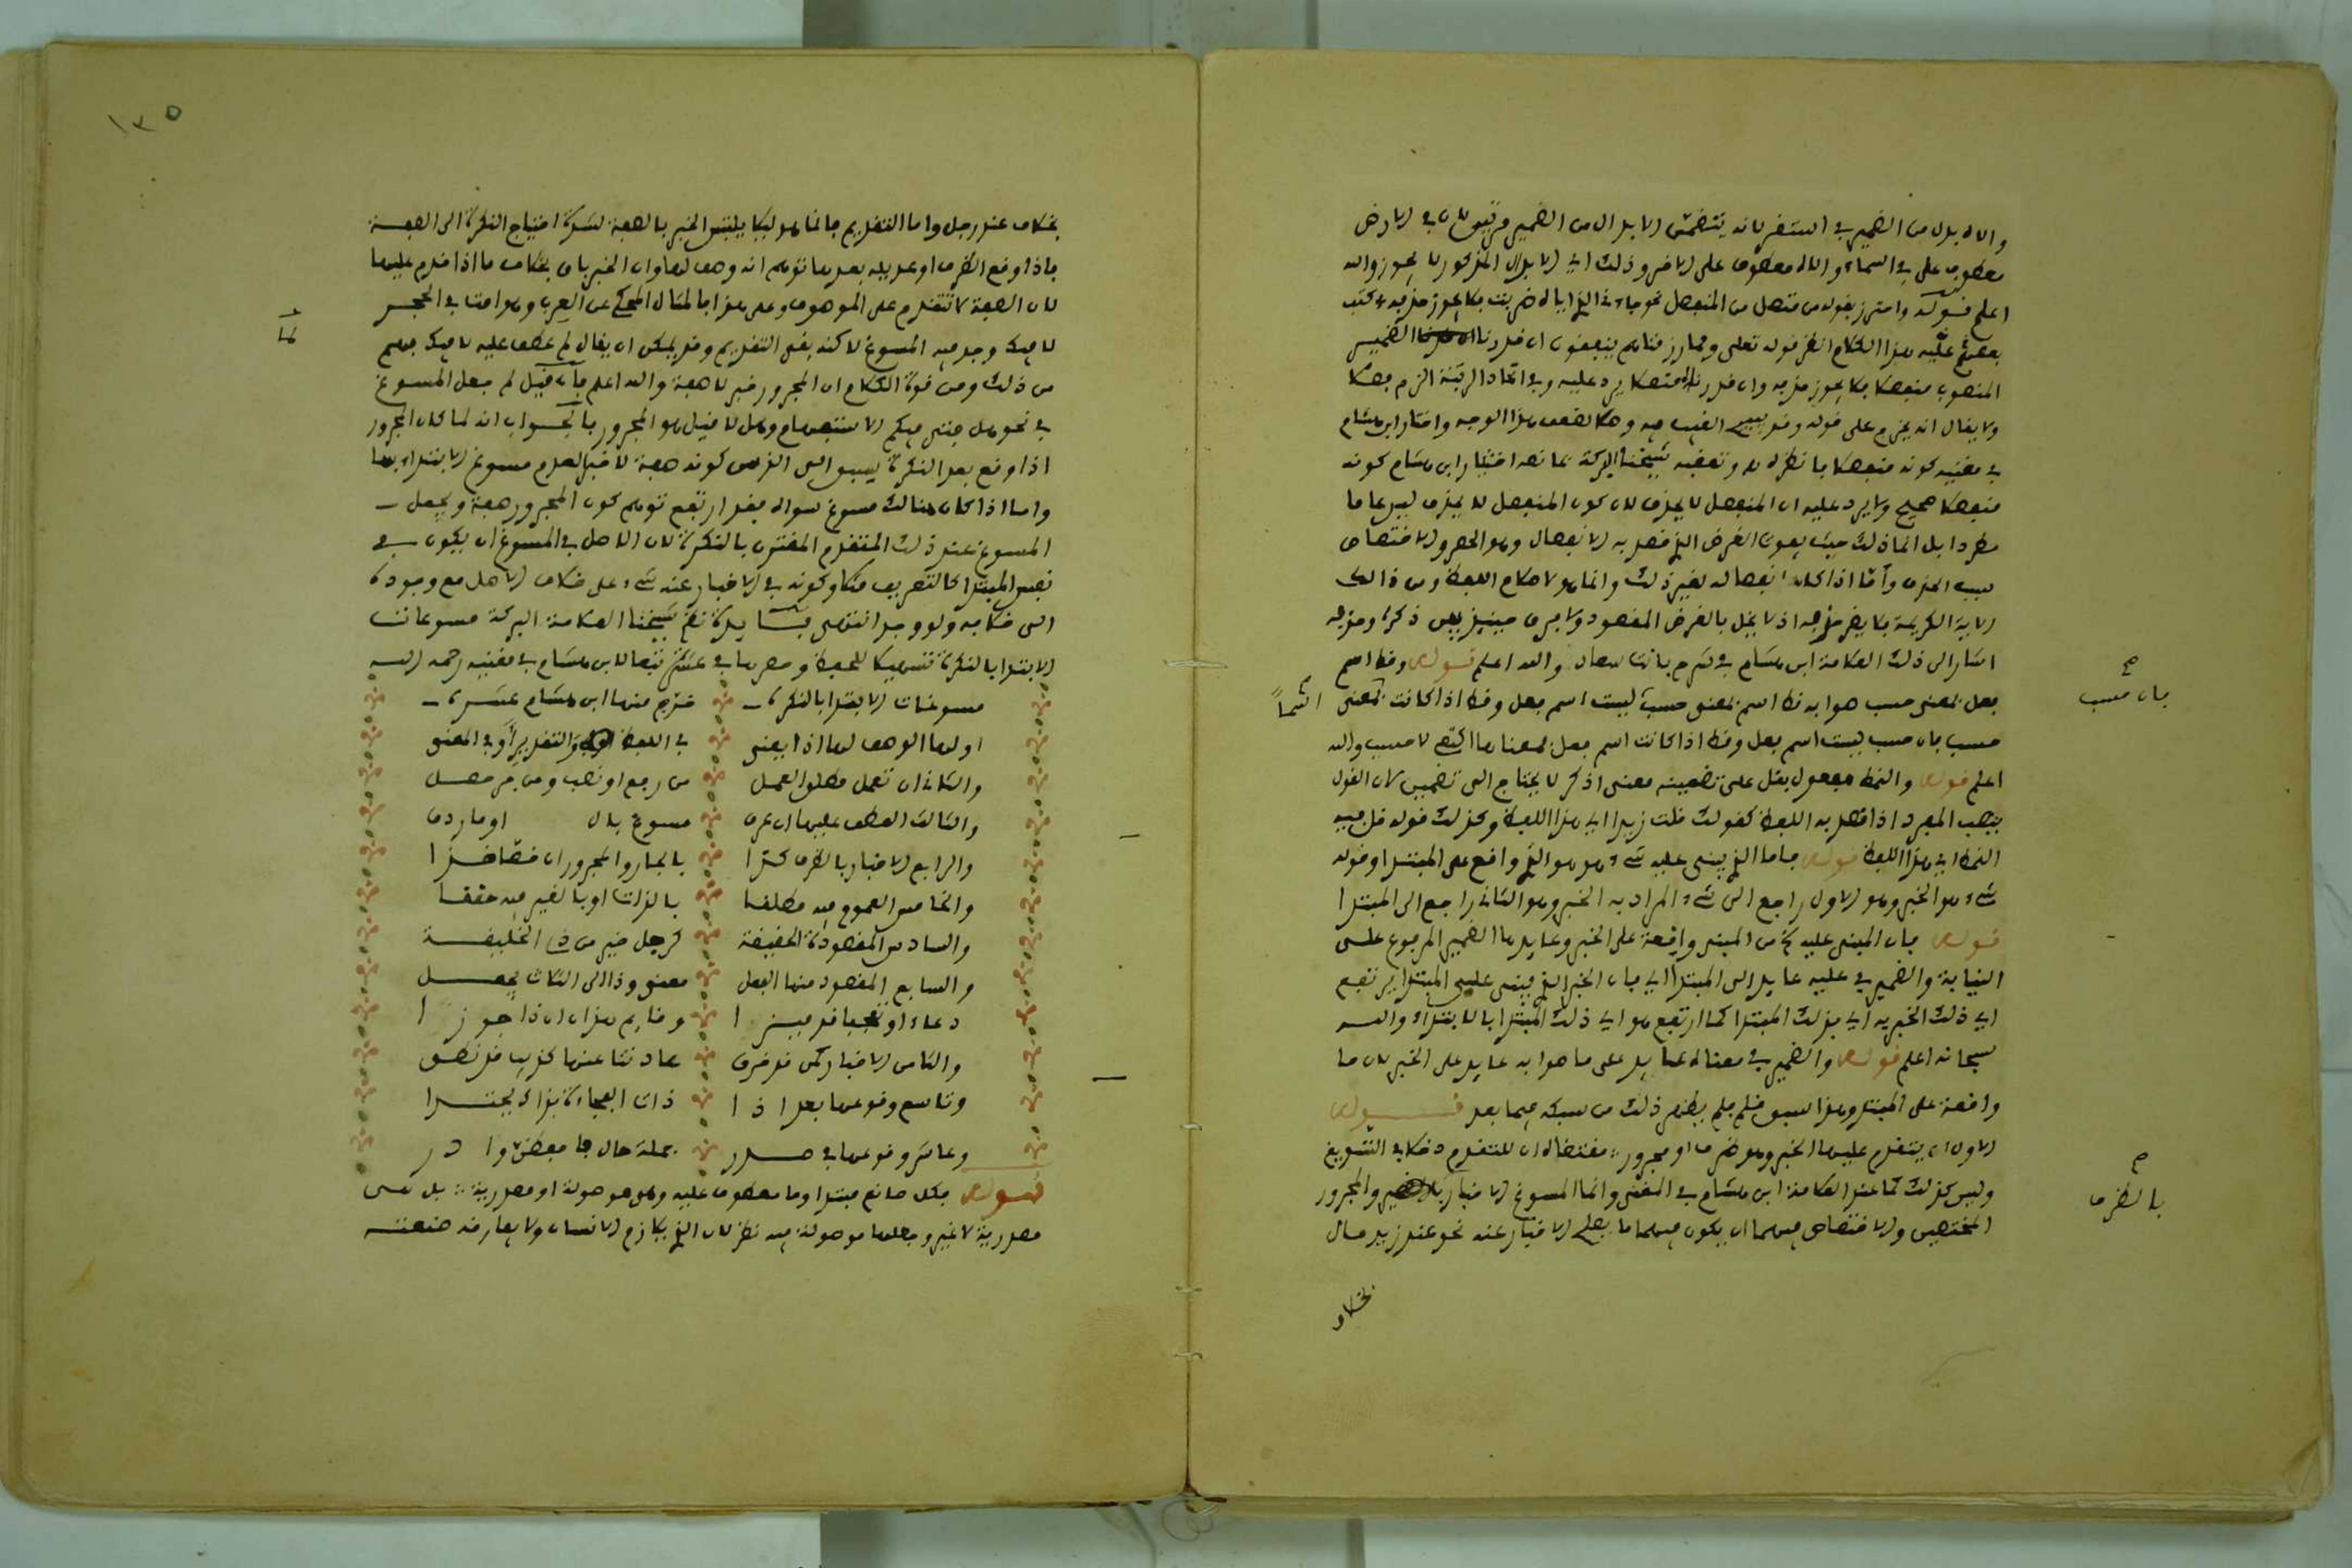 والاه بدل من الضمير في استقر لانه يتضمن الابدال من الضمير مرتين في الارض
معطوف على في السماء والاه معطوف على الارض وذلك اي الابدال المذكور لا يجوز والله
اعلم قوله واحترز بقوله من متصل من المنفصل نحو جاء الذي اياه ضربت فلا يجوز حذفه وكتب
عليه هذا الكلام انظر قوله تعلى ومما رزقناهم ينفقون ان قدرنا الضمير
المنصوب منفصلا فلا يجوز حذفه وان قدرناه متصلا يرد عليه وفي اتحاد الرتبة الزم فصلا
ولا يقال انه يخرج على قوله وقد يبيح الغيب فيه وصلا لضعف هذا الوجه واختار ابن هشام
في مغنيه كونه منفصلا فانظره وتعقبه شيخنا البركة بما نصه اختيار ابن هشام كونه
منفصلا صحيح ولا يرد عليه ان المنفصل لا يحذف لان كون المنفصل لا يحذف ليس عاما
مطردا بل انما ذلك حيث يفوت الغرض الذي قصد به الانفصال وهو الحصر والاختصاص
بسبب الحذف وأما اذا كان انفصاله لغير ذلك وانما هو لاحكام اللفظ ومن ذالك
الاية الكريمة فلا يضر حذفه اذ لا يخل بالغرض المقصود ولا فرق حينئذ بين ذكره وحذفه
اشار الى ذلك العلامة ابن هشام في شرح بانت سعاد والله اعلم قوله وقط اسم
فعل بمعنى حسب صوابه قط اسم بمعنى حسب ليست اسم فعل وقط اذا كانت بمعنى
حسب فان حسب ليست اسم فعل وقط اذا كانت اسم فعل فمعناها اكتفي لا حسب والله
اعلم قوله والنمط مفعول بقل على تضمينه معنى اذكر لا يحتاج الى تضمين لان القول
ينصب المفرد اذا قصد به اللفظ كقولك قلت زيدا اي هذا اللفظ وكذلك قوله قل فيه
النمط اي هذا اللفظ قوله فاما الذي يبنى عليه شيء هو هو الذي واقع على المبتدا وقوله
شيء هو الخبر وهو الاول راجع الى شيء المراد به الخبر وهو الثاني راجع الى المبتدا
قوله فان المبنى عليه من المبنى واقعة على الخبر وعايدها الضمير المرفوع على
النيابة والضمير في عليه عايد الى المبتدا اي فان الخبر الذي يبنى على المبتدا يرتفع
اي ذلك الخبر به اي بذلك المبتدا كما ارتفع هو اي ذلك المبتدا بالابتداء والله
سبحانه اعلم قوله والضمير في معناه عايد على ما صوابه عايد على الخبر لان ما
واقعة على المبتدا وهذا سبق قلم فلم يظهر ذلك من سبكه فيما بعد قوله
الاول ان يتقدم عليها الخبر وهو ظرف او مجرور مقتضاه ان للتقدم دخلا في التسويغ
وليس كذلك كما عند العلامة ابن هشام في المغنى وانما المسوغ الاخبار والمجرور
المختصين والاختصاص فيهما ان يكون فيهما ما يصلح الاخبار عنه نحو عند زيد مال
بخلاف
فان حسب
اسماً
بالظرف
١٣٥
بخلاف عند رجل واما التقديم فانما هو ليلا يلتبس الخبر بالصفة لشدة احتياج النكرة الى الصفة
فاذا وقع الظرف او عديله بعدها توهم انه وصف لها وان الخبر باق بخلاف ما اذا قدم عليها
لان الصفة لا تتقدم على الموصوف وعلى هذا فالمثال المحكي عن العرب وهو امت في الحجر
لا فيك وجد فيه المسوغ لاكنه بقى التقديم وقد يمكن ان يقال لم عطف عليه لا فيك فهم
من ذلك ومن قوة الكلام ان المجرور خبر لا صفة والله اعلم فان قيل لم جعل المسوغ
في نحو هل فتى فيكم الاستفهام وهل لا قيل هو المجرور فالجواب انه لما كان المجرور
اذا وقع بعد النكرة يسبق الى الذهن كونه صفة لا خبرا لعدم مسوغ الابتداء بها
واما اذا كان هنالك مسوغ سواه فقد ارتفع توهم كون المجرور صفة ويجعل
المسوغ عند ذلك المتقدم المقترن بالنكرة لان الاصل في المسوغ ان يكون في
نفس المبتدا كالتعريف مثلا وكونه في الاخبار عنه شيء على خلاف الاصل مع وجوده
الى خلافه ولو وجد انتهى فايدة نظم شيخنا العلامة البركة مسوغات
الابتدا بالنكرة تسهيلا للحفظ وحصرها في عشر تبعا لابن هشام في مغنيه رحمه الله
مسوغات الابتدا بالنكره خرج منها ابن هشام عشره
اولها الوصف لها اذا يعنى في اللفظ والتقدير أو في المعنى
والثاني ان تعمل مطلق العمل من رفع او نصب ومن جر حصل
والثالث العطف عليها ان عرف مسوغ بان او ما ردف
والرابع الاخبار بالظرف كذا بالجار والمجرور ان خصا خذا
والخامس العموم فيه مطلقا بالذات او بالغير فيه حققا
والسادس المقصودة الحقيقة كرجل خير من ذي الخليقة
والسابع المقصود منها الفعل معنى وذا الى الثلاث يجعل
دعاء او تعجبا قد ميزا وقايم هذان ان ذا جوزا
والثامن الاخبار كمن قد خرق عادتنا عنها كذيب قد نطق
وتاسع وقوعها بعد اذا ذات الفجاءة بذاك يحتذا
وعاشر وقوعها في صدر جملة حال فافطن وادر
قوله فكل صانع مبتدا وما معطوف عليه وهل موصولة او مصدرية بل هي
مصدرية لا غير وجعلها موصولة فيه نظر لان الذي يلازم الانسان ولا يفارقه صنعته
لما